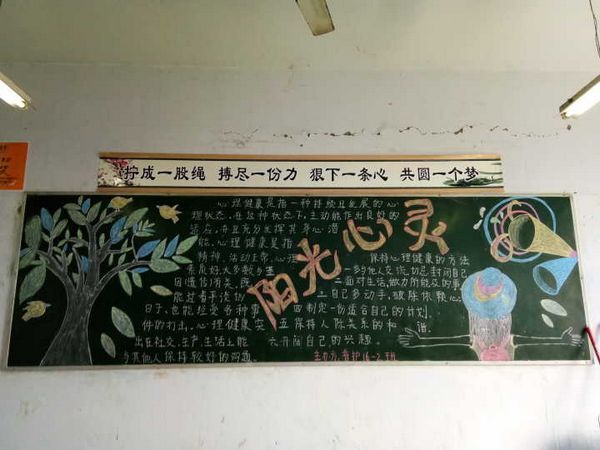 拧成一股绳 搏尽一份力 狠下一条心 共圆一个梦
阳光心灵
心理健康是指一种持续且发展的心
理状态,在这种状态下,主动能作出良好的
适应,并且充分发挥其身心潜
能。心理健康是指
精神、活动正常、心理
素质好,大多数
能过着平淡的
日子,也能经受各种事
件的打击。心理健康突
出在社交、生产、生活上能
与其他人保持较好的沟通。
保持心理健康的方法
一多与他人交流,切忌封闭自己
二面对生活,做力所能及的事
三自己多动手,破除依赖心
四制定一份适合自己的计划
五保持人际关系的和谐
六开阔自己的兴趣
主办方:育护16-2班